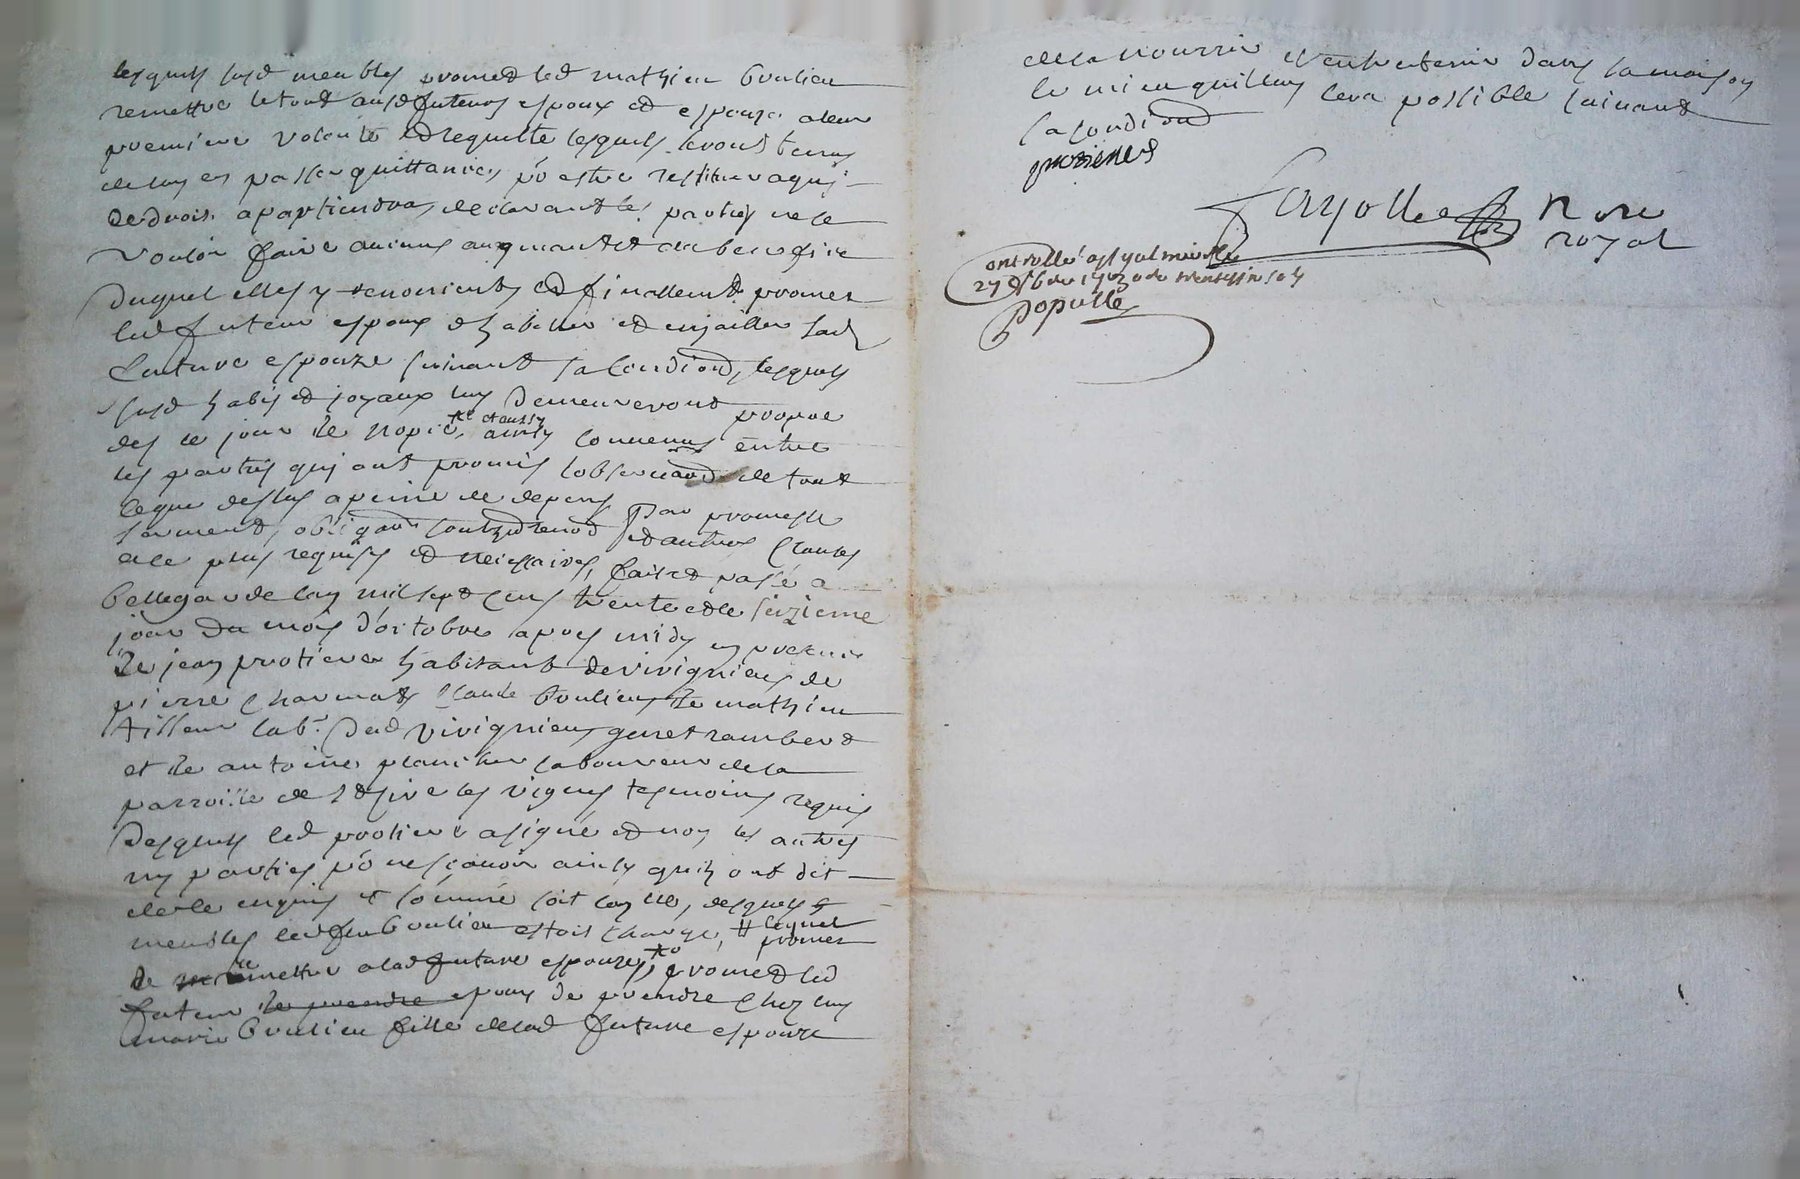 lesquels susd meubles promet led mathieu Boulieu
remettre le tout ausd futeurs espoux et espouze a leur
premiere volonté et requette lesquels seront tenus
de luy en passer quittances po estre restitue a qui
de droit apartiendra, declarant les parties ne se
vouloir faire aucuns augmant et de benefice
duquel elles y renoncient, et finallemt promet
led futeur espoux d habiller et enjailler lad
future espouze suivant sa condiond, lesquels
susd habis et joyaux luy demeureront propre
des le jour de nopce, et aussy ainsy convenus entre
les parties qui ont promis lobservaond de tout
ce que dessus a peine de depens par promesse
serment, obligaon soubz renod et autres clauses
de plus requises et neicessaires, fait et passé a
bellegarde lan mil sept cens trente et le seizieme
jour du mois d'octobre apres midy en presence
de jean protiere habitant de rivignieu de
pierre charmat claude boulieu de mathieu
tilleur lab.r dud Vivignieu genet rambert
et de antoine plancher laboureur de la
parroisse de st sire les vignes tesmoins requis
desquels led protiere a signé et non les autres
ny parties po ne sçavoir ainsy quils ont dit
de ce enquis et sommé soit con lle, desquels
meubles led feu boulieu estoit chargé, # lequel promet
de remettre a lad future espouze, promet led
futeur de prendre epoux de prendre chez luy
marie boulieu fille de lad future espouze
de la nourrir et entretenir dans sa maison
le mieu quil luy sera possible suivant
sa condiond
protiere
fayolle nore
royal
Controllé a st galmier le
27 8bre 1730 trente six sols
populle